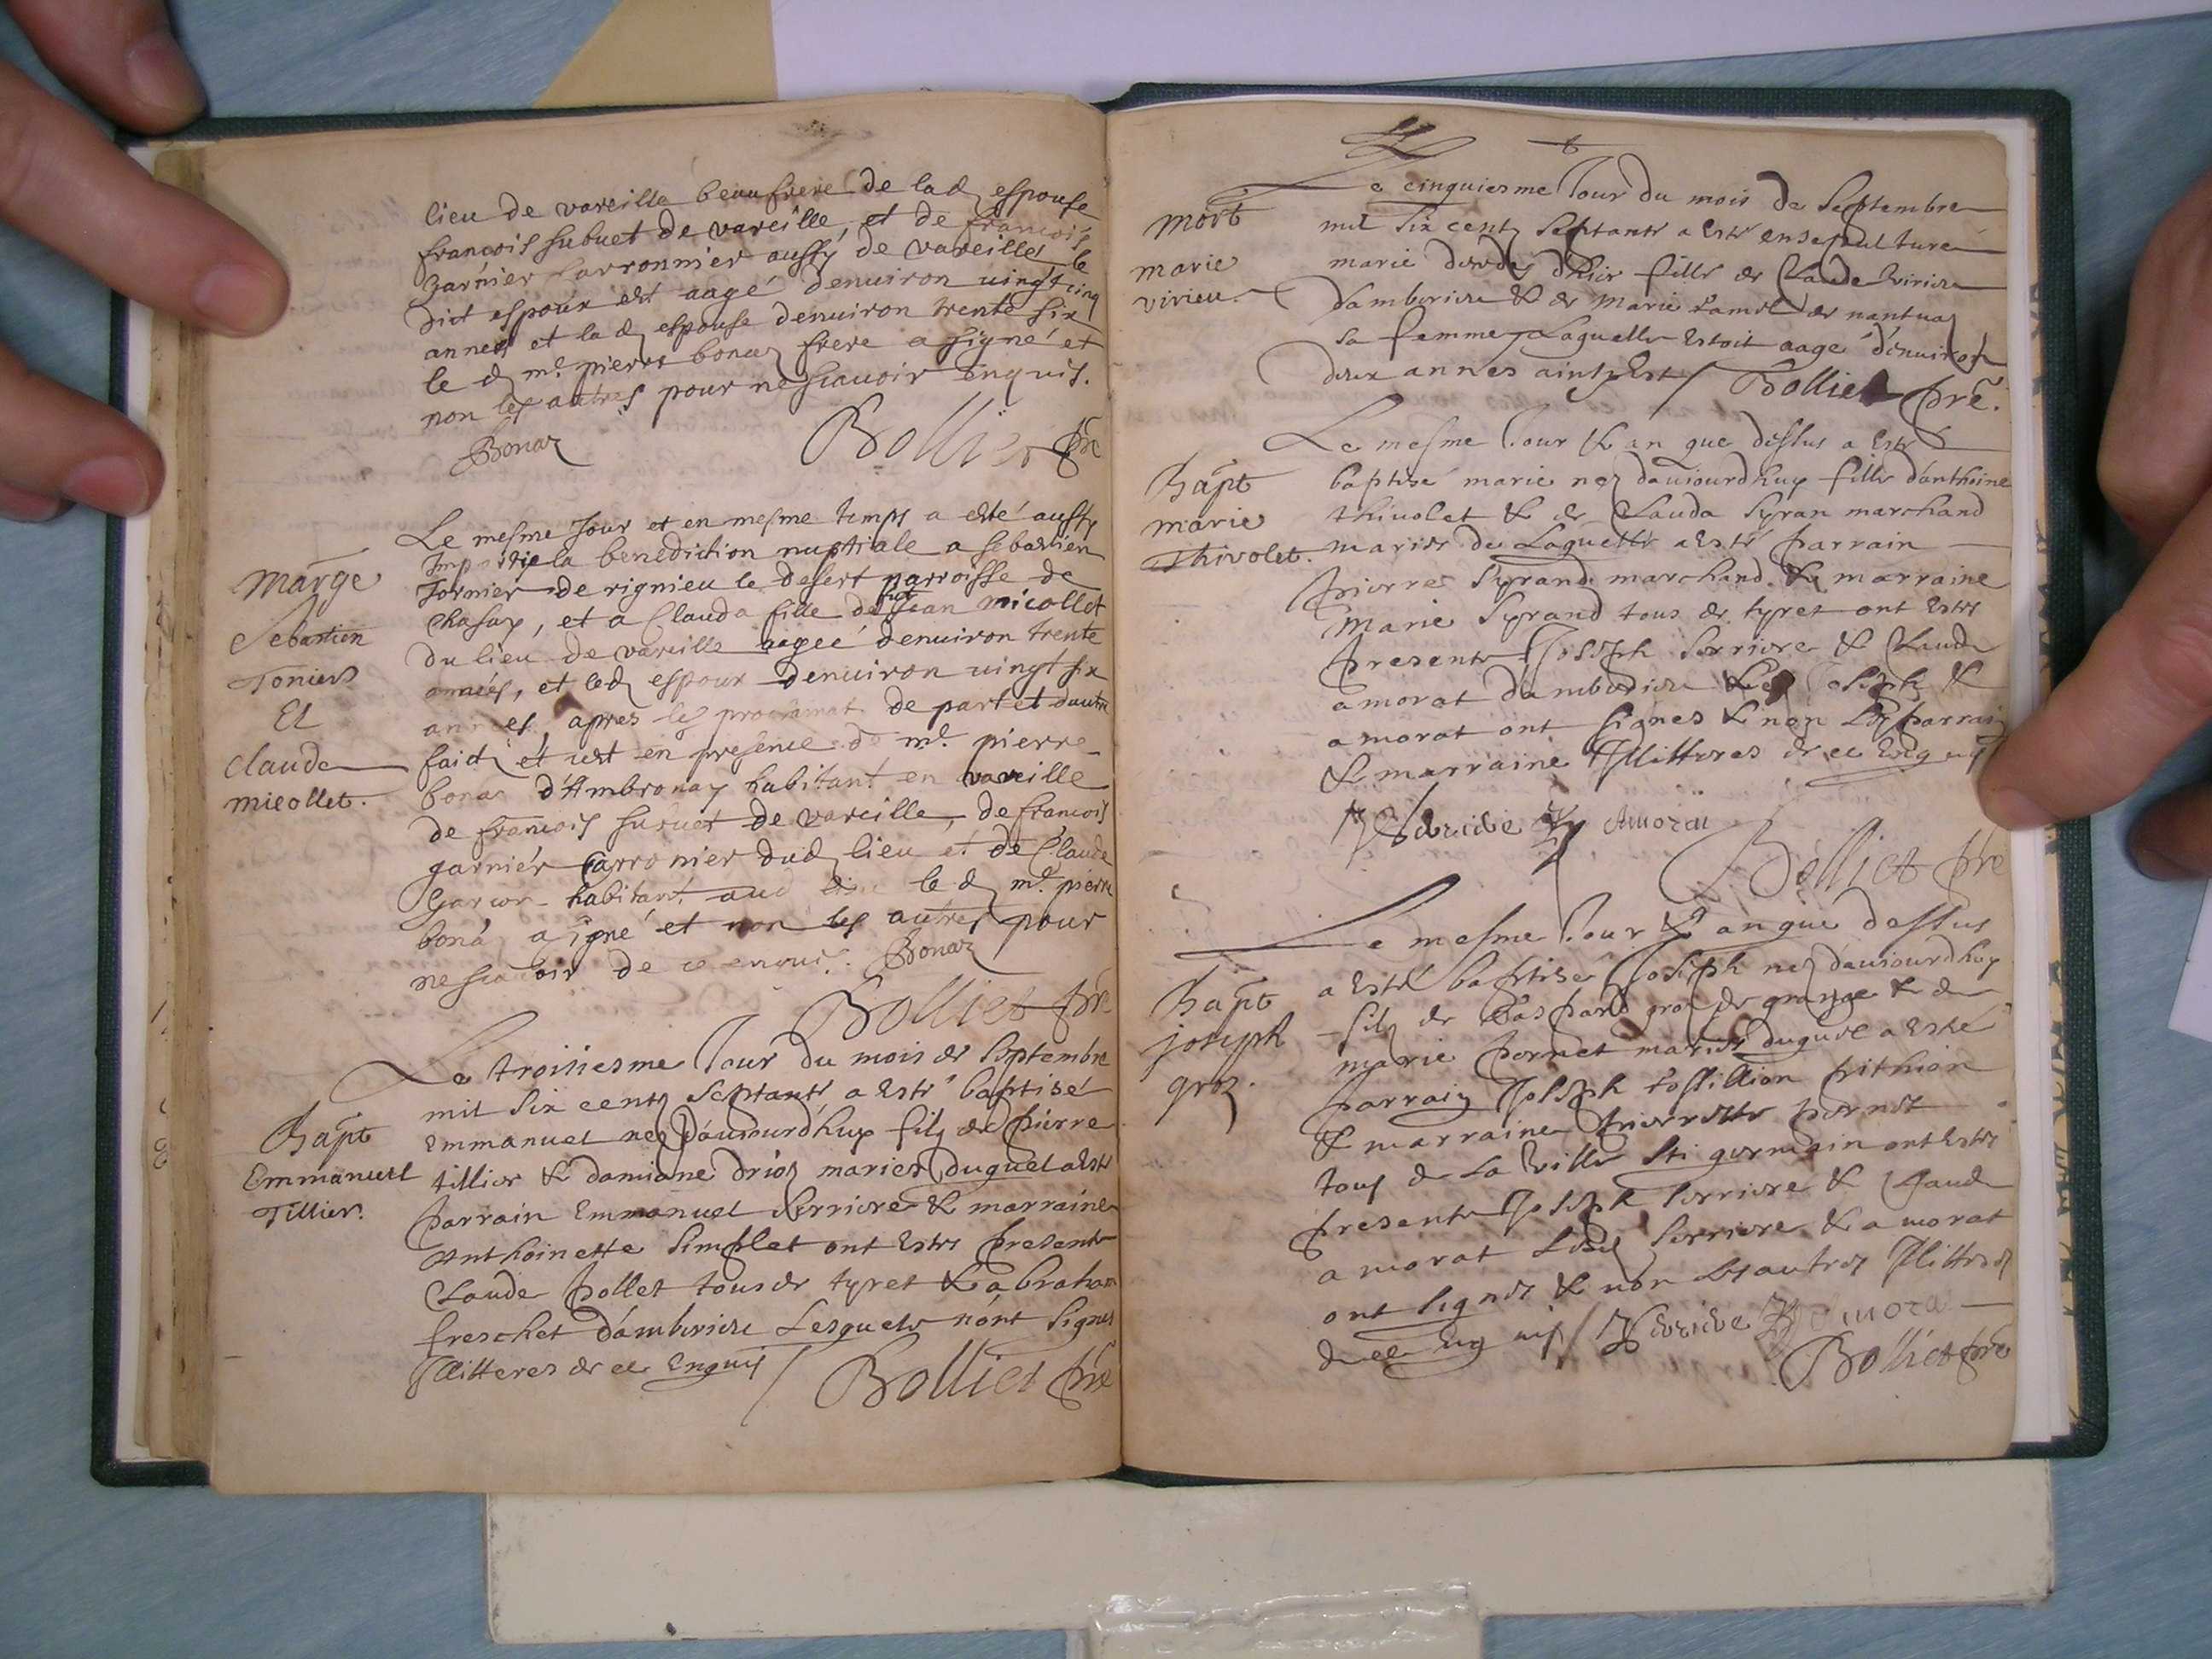 lieu de vareille beau frere de lad espouse
françois subuet de vareille, et de françois
garnier aussy de vareille le
dict espoux est aagé denuiron uingt cinq
années et lad espouse denuiron trente six
le d me. pierre bonaz frere a signé et
non les autres pour ne scauoir enquis.
Bonaz Bolliet pre
marge
Sebastien
Toniers
Et
claude
micollet.
Le mesme Jour et en mesme temps a esté aussy
la benediction nuptiale a sebastien
Tornier de rignieu le desert parroisse de
Chasay, et a Clauda fille de Jean micollet
du lieu de vareille aagée denuiron trente
années, et led espoux denuiron uingt six
années, apres les de part et dautre
faict et cest en presence de me. pierre
bonaz d'Ambronay habitant en vareille
de françois subuet de vareille, de françois
garnier Carronier dud lieu et de Claude
habitant aud lieu le d me. pierre
bonaz a signé et non les autres pour
ne scauoir de ce enquis. Bonaz
Bolliet pre
Bapt
Emmanuel
Tillier.
Le troisiesme Jour du mois de septembre
mil six cent septante a este baptisé
Emmanuel nez d'auiourdhuy filz de pierre
tillier & damiane mariez duquel a este
parrain Emmanuel serriere & marraine
Anthoinette simplet ont estes presents
Claude pollet tous de tyret & abraham
freschet d'amberieu Lesquels n'ont signes
Illitteres de ce Enquis / Bolliet pre
mort
marie
virieu.
Le cinquiesme Jour du mois de Septembre
mil six cent septante a este ensepulturé
marie d'hier fille de Claude virieu
d'amberieu & de marie de nantua
sa femme, Laquelle estoit aage d'enuiron
deux annes ainsy Est / Bolliet pre.
Bapt
marie
Thivolet.
Le mesme Jour & an que dessus a este
baptisé marie nez dauiourdhuy fille d'anthoine
thiuolet & de Clauda syran marchand
mariez de Laquelle a esté parrain
pierre syrand marchand & marraine
Marie syrand tous de tyret ont estes
presents Joseph serriere & Claude
amorat d'amberieu Joseph &
amorat ont signes & non les parrain
& marraine Illitteres de ce Enquis
J Serriere Amorat
Bolliet pre
Bapt
joseph
groz.
Le mesme Jour & an que dessus
a esté baptisé Joseph nez dauiourdhuy
filz de Gaspard groz de grange & de
marie pernet mariez duquel a esté
parrain Joseph
& marraine pierrette pernet
tous de La Ville St germain ont estes
presents Joseph serriere & Claude
amorat serriere & amorat
ont signes & non les autres Illitteres
de ce Enquis / J Serriere Amorat
Bolliet pre